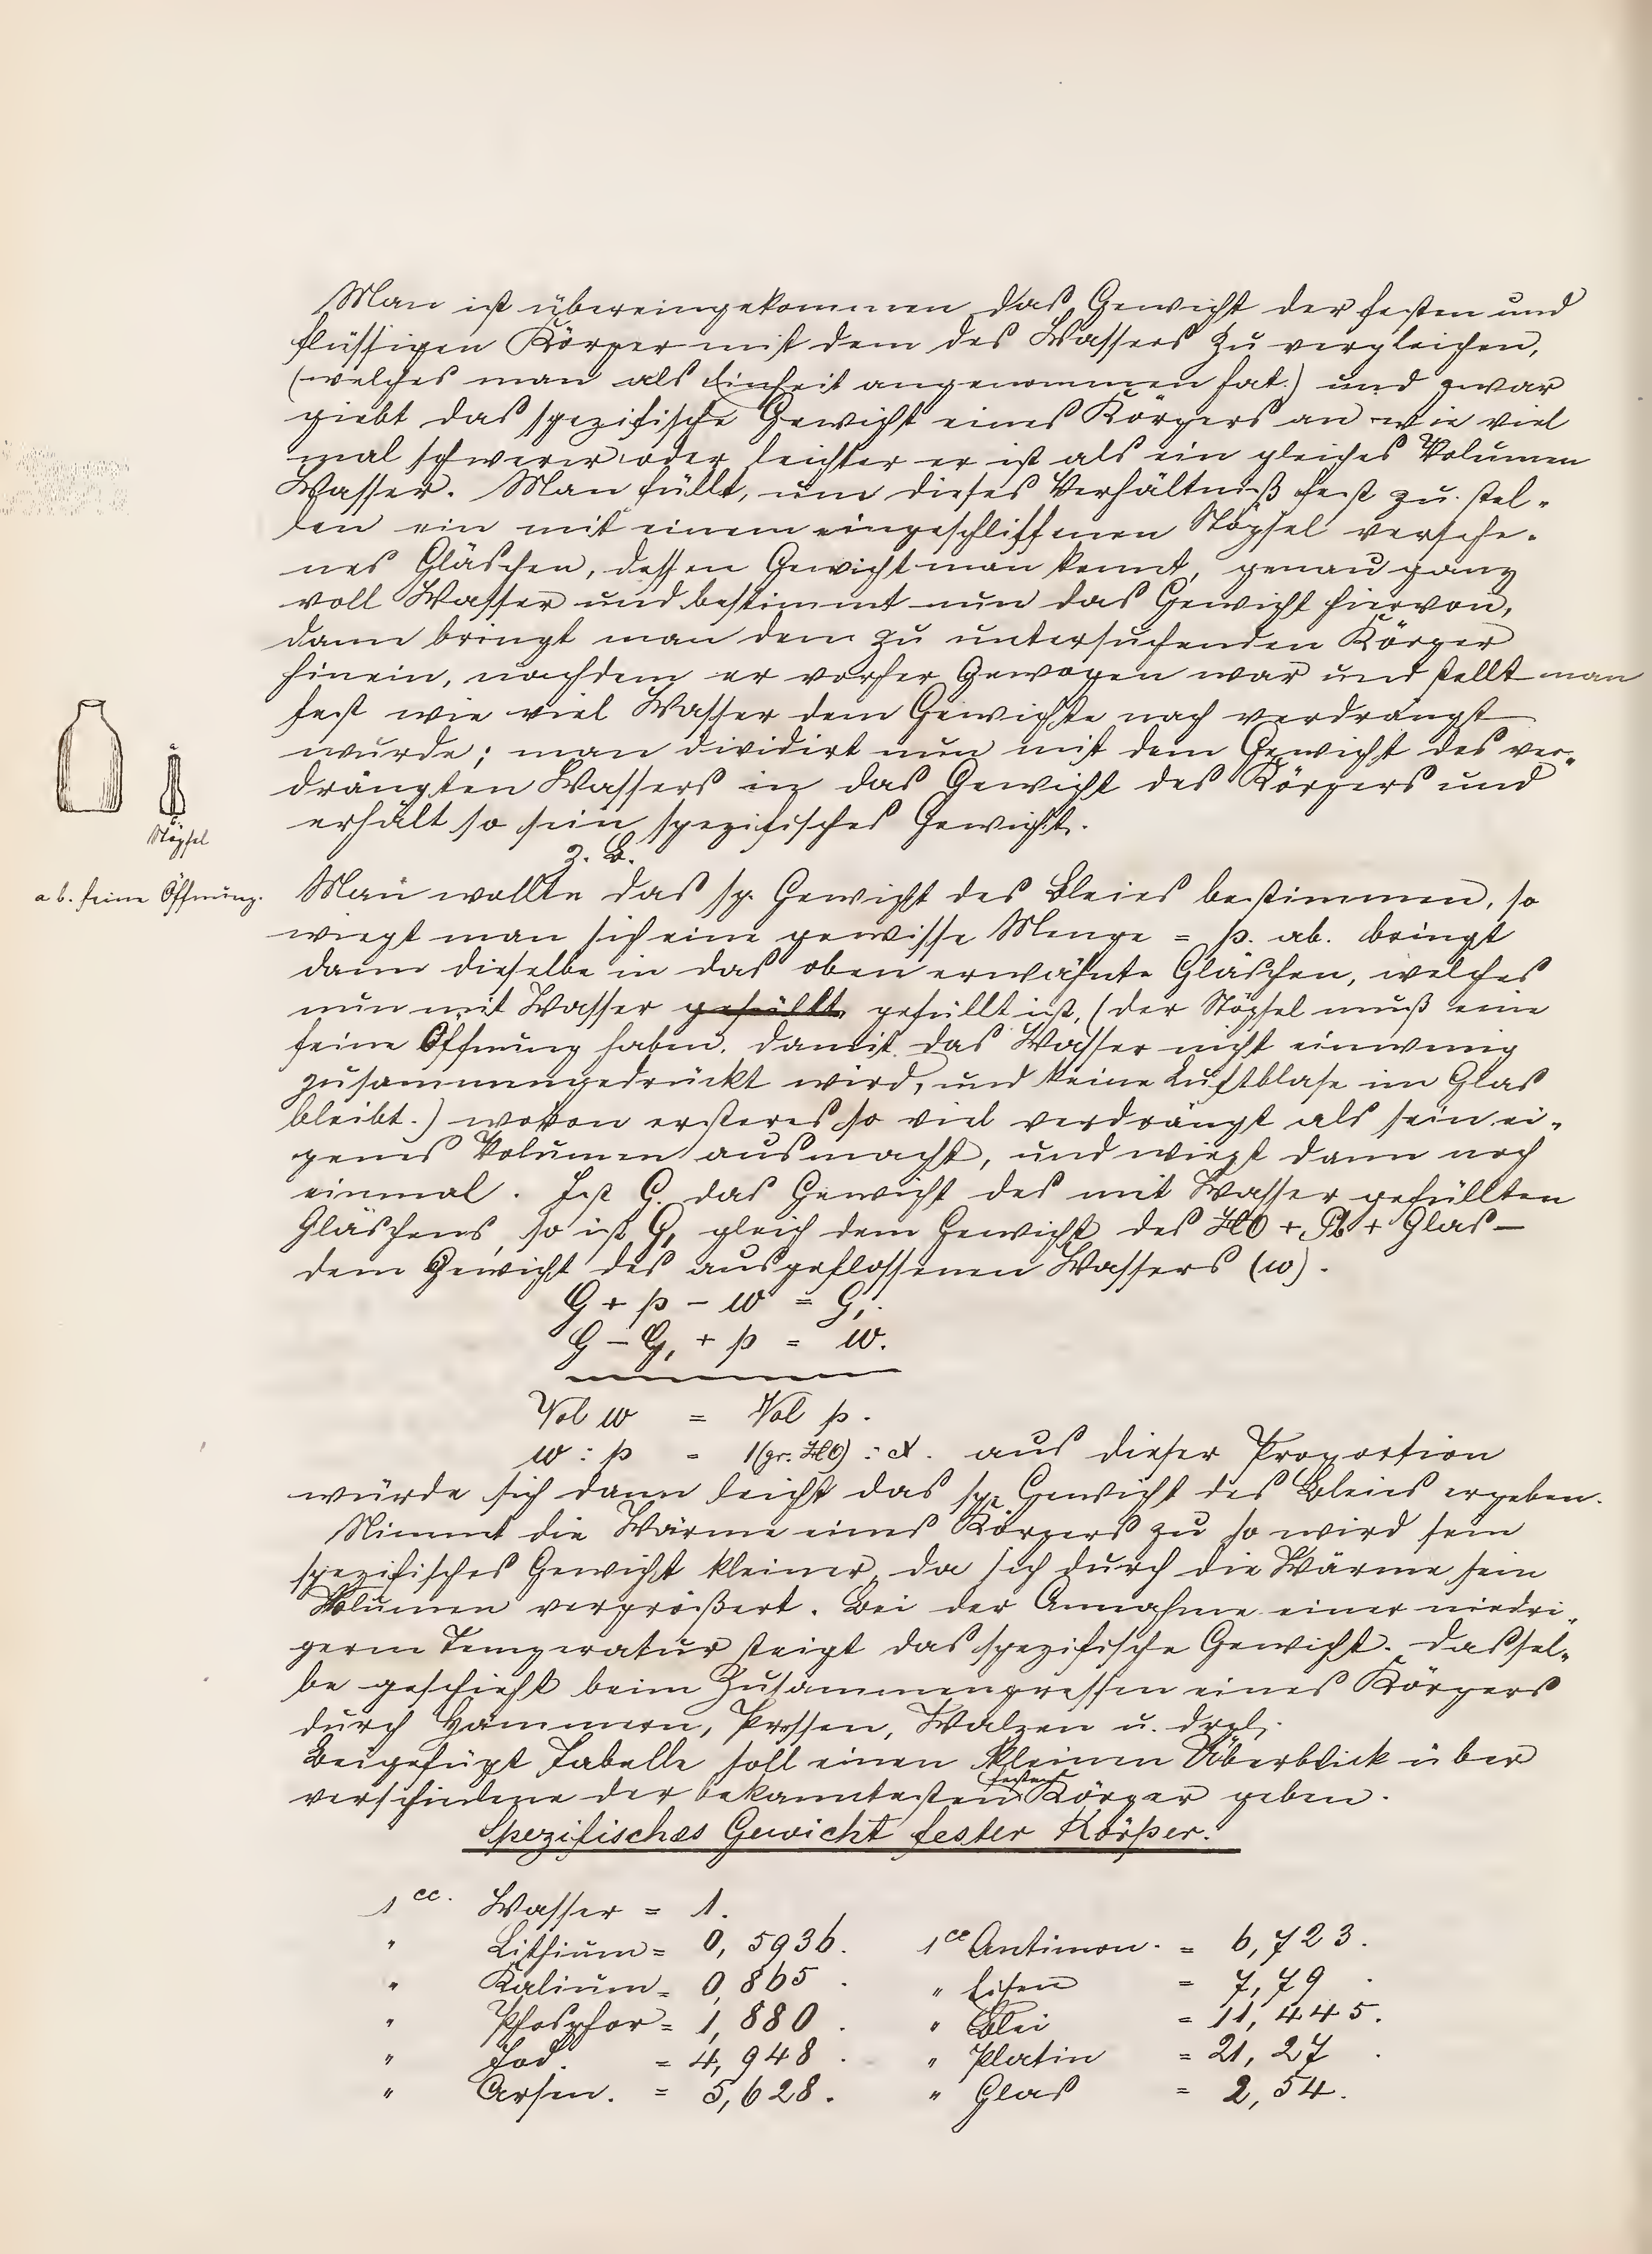 Man ist übereingekommen das Gewicht der festen und
flüssigen Körper mit dem des Wassers zu vergleichen,
(welches man als Einheit angenommen hat.) und zwar
giebt das spezifische Gewicht eines Körpers an wie viel
mal schwerer oder leichter er ist als ein gleiches Volumen
Wasser. Man füllt, um dieses Verhältniß fest zu stel-
len ein mit einem eingeschliffenen Stöpsel versehe-
nes Gläschen, dessen Gewicht man kennt, genau ganz
voll Wasser und bestimmt nun das Gewicht hiervon,
dann bringt man dem zu untersuchenden Körper
hinein, nachdem er vorher Gewogen war und stellt man
fest wie viel Wasser dem Gewichte nach verdrängt
wurde; man dividirt nun mit dem Gewicht des ver-
drängten Wassers in das Gewicht des Körpers und
erhält so sein spezifisches Gewicht.
a
b
Stöpsel
a b. feine Öffnung.
z. B.
Man wollte das sp. Gewicht des Bleies bestimmen, so
wiegt man sich eine gewisse Menge = p. ab. bringt
dann dieselbe in das oben erwähnte Gläschen, welches
nun mit Wasser gefüllt gefüllt ist, (der Stöpsel muß eine
feine Öffnung haben. damit das Wasser nicht einwenig
zusammengedrückt wird, und keine Luftblase im Glas
bleibt.) wovon ersteres so viel verdrängt als sein ei-
genes Volumen ausmacht, und wiegt dann noch
einmal. Ist G. das Gewicht des mit Wasser gefüllten
Gläschens, so ist G, gleich dem Gewicht des HO + Pb + Glas —
dem Gewicht des ausgeflossenen Wassers (w).
G + p - w = G,.
G - G, + p = w.
Vol w = Vol p.
w : p = 1(gr. HO) : x. aus dieser Proportion
würde sich dann leicht das sp. Gewicht des Bleies ergeben.
Nimmt die Wärme eines Körpers zu so wird sein
spezifisches Gewicht kleiner, da sich durch die Wärme sein
Volumen vergrößert. Bei der Annahme einer niedri-
germ Temperatur steigt das spezifische Gewicht. Dassel-
be geschieht beim Zusammenpressen eines Körpers
durch Hämmern, Pressen, Walzen u. drgl.
Beigefügt Tabelle soll einen kleinen Überblick über
festen
verschiedene der bekanntesten Körper geben.
Spezifisches Gewicht fester Körper.
1 cc. Wasser = 1.
" Lithium = 0,5936. 1 cc Antimon. = 6,723.
" Kalium = 0,865. " Eisen = 7,79.
" Phosphor = 1,880. " Blei = 11,445.
" Jod. = 4,948. " Platin = 21,27.
" Arsen. = 5,628. " Glas = 2,54.